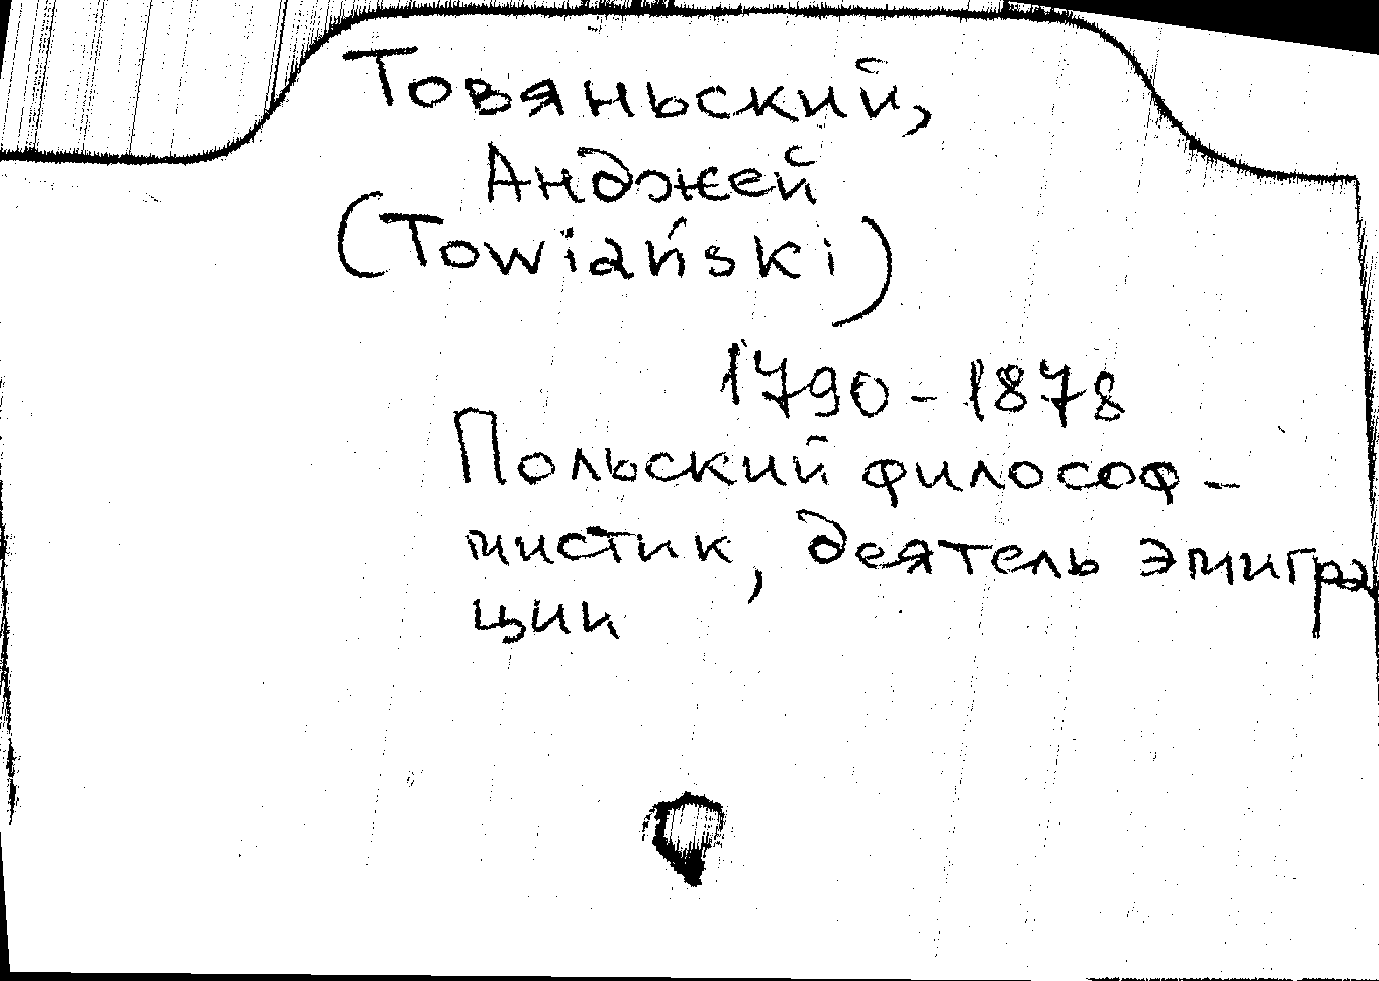 Товяньский,
Анджей
(Towiański)
1790-1878
Польский философ-
мистик, деятель эмигра
ции